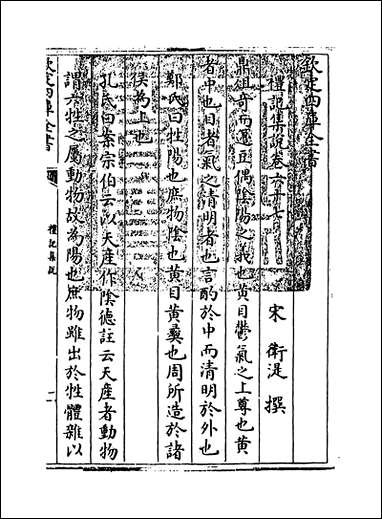 欽定四庫全書
禮記集說卷六十七
宋 衛湜 撰
鼎俎奇而籩豆偶陰陽之義也黃目鬱氣之上尊也黃
者中也目者氣之清明者也言酌於中而清明於外也
鄭氏曰牲陽也庶物陰也黃目黃彝也周所造於諸
侯為上也
孔氏曰案宗伯云以天產作陰德註云天產者動物
謂六牲之屬動物故為陽也庶物雖出於牲體雜以
欽定四庫全書
禮記集說